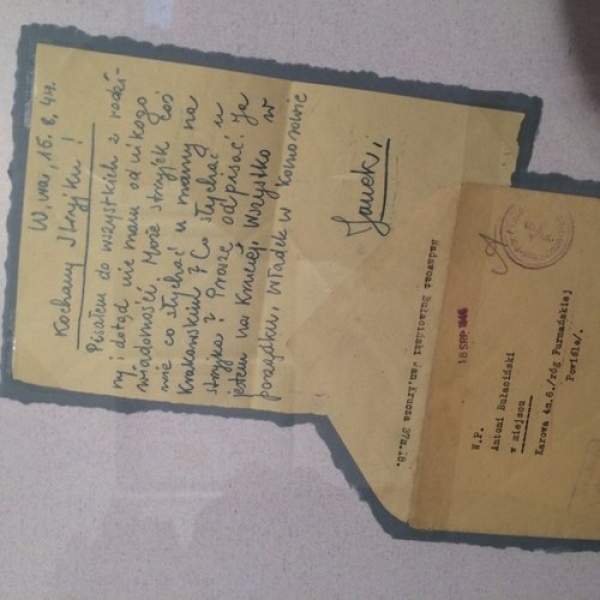 W, wa, 15. 8, 44.
Kochany Stryjku!
Pisałem do wszystkich z rodzi-
ny i dotąd nie mam od nikogo
wiadomości. Może stryjek coś
wie co słychać u mamy na
Krakowskim 7 Co słychać u
stryjka? Proszę odpisać. Ja
jestem na Kruczej. Wszystko w
porządku, Władek w Komorowie
Janek.
nadawca Bułaciński Jan, Krucza 37m.18.
18 SRP 1944
W.P.
Antoni Bułaciński
w miejscu
Karowa 4m.6./róg Furmańskiej
Powiśle/.